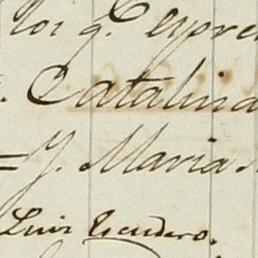 los q.e expre
. Catalina
= Y. Maria
Luis Escudero.